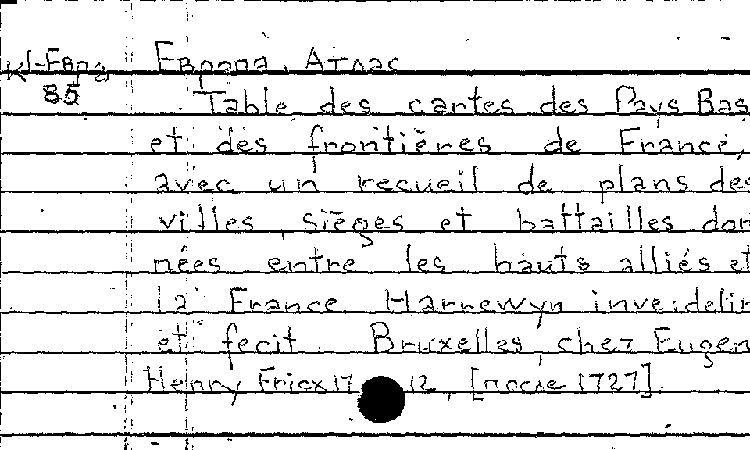 К1-Евра Европа. Атлас
85 Table des cartes des Pays Bas
et des frontières de France,
avec un recueil de plans des
villes, sièges et battailles don
nées entre les hauts alliés et
la France. Harrewyn inve:delin
et fecit. Bruxelles, chez Eugen
Henry Fricx 17 12, [после 1727].